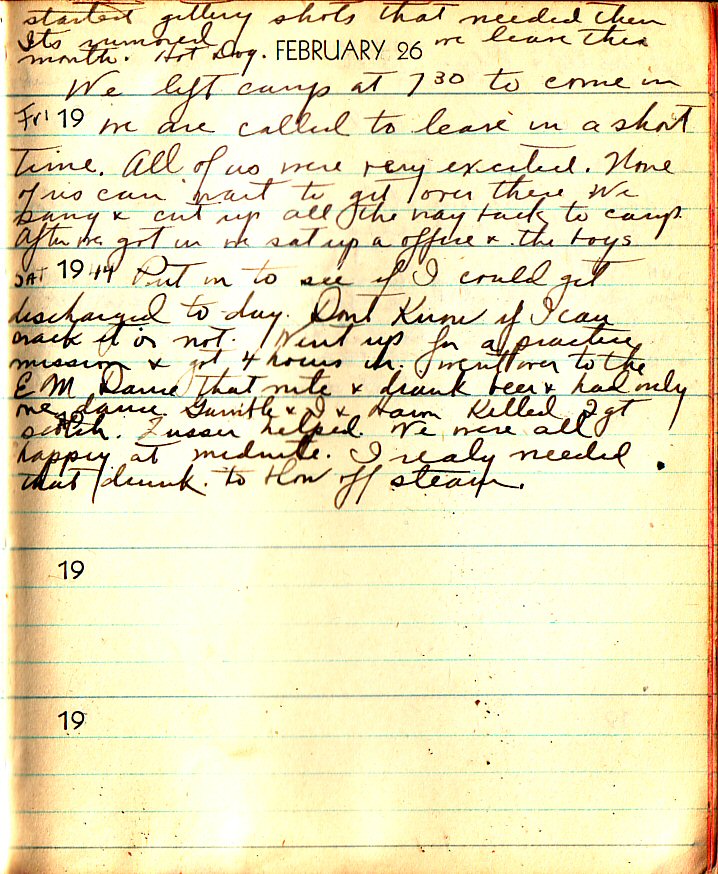 started getting shots that needed them
Its rumored we leave this
month. Hot Dog. FEBRUARY 26
We left camp at 7 30 to come in
Fri 19 we are called to leave in a short
time. All of us were very excited. None
of us can wait to get over there We
sang & cut up all the way back to camp.
After we got in we sat up a office & the boys
SAT 19 44 Put in to see if I could get
discharged to-day. Dont Know if I can
crack it or not. Went up for a practice
mission & got 4 hours in. went over to the
E M Dance that nite & drank beer & had only
one dance. & I & Killed 2 qt
scotch. Zusser helped. We were all
happy at midnite. I realy needed
that drunk. to blow off steam.
19
19